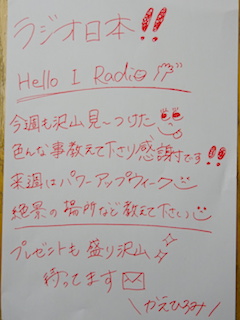 ラジオ日本!!
Hello I Radio
今週も沢山見〜つけた
色んな事教えて下さり感謝です!!
来週はパワーアップウィーク
絶景の場所など教えて下さい
プレゼントも盛り沢山
待ってます
\かえひろみ/